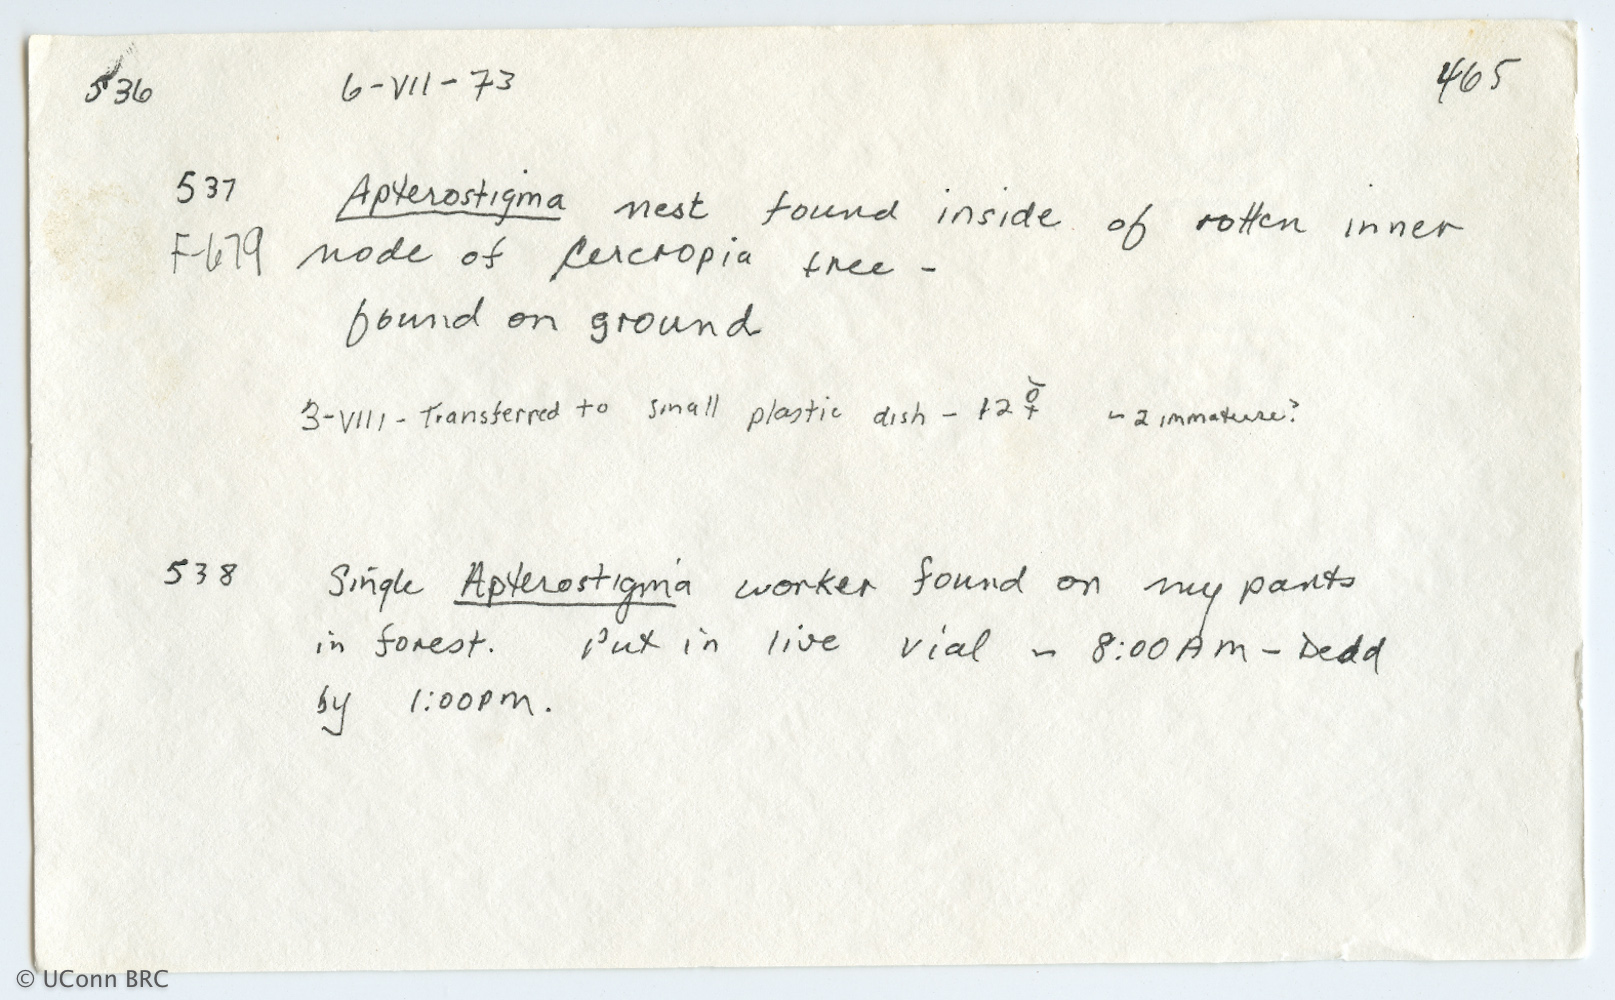 536 6-VII-73 465
537 Apterostigma nest found inside of rotten inner
F-679 node of Cercropia tree -
found on ground
3-VIII - Transferred to small plastic dish - 12 ☿ - 2 immature?
538 Single Apterostigma worker found on my pants
in forest. Put in live vial - 8:00 AM - Dead
by 1:00 pm.
© UConn BRC